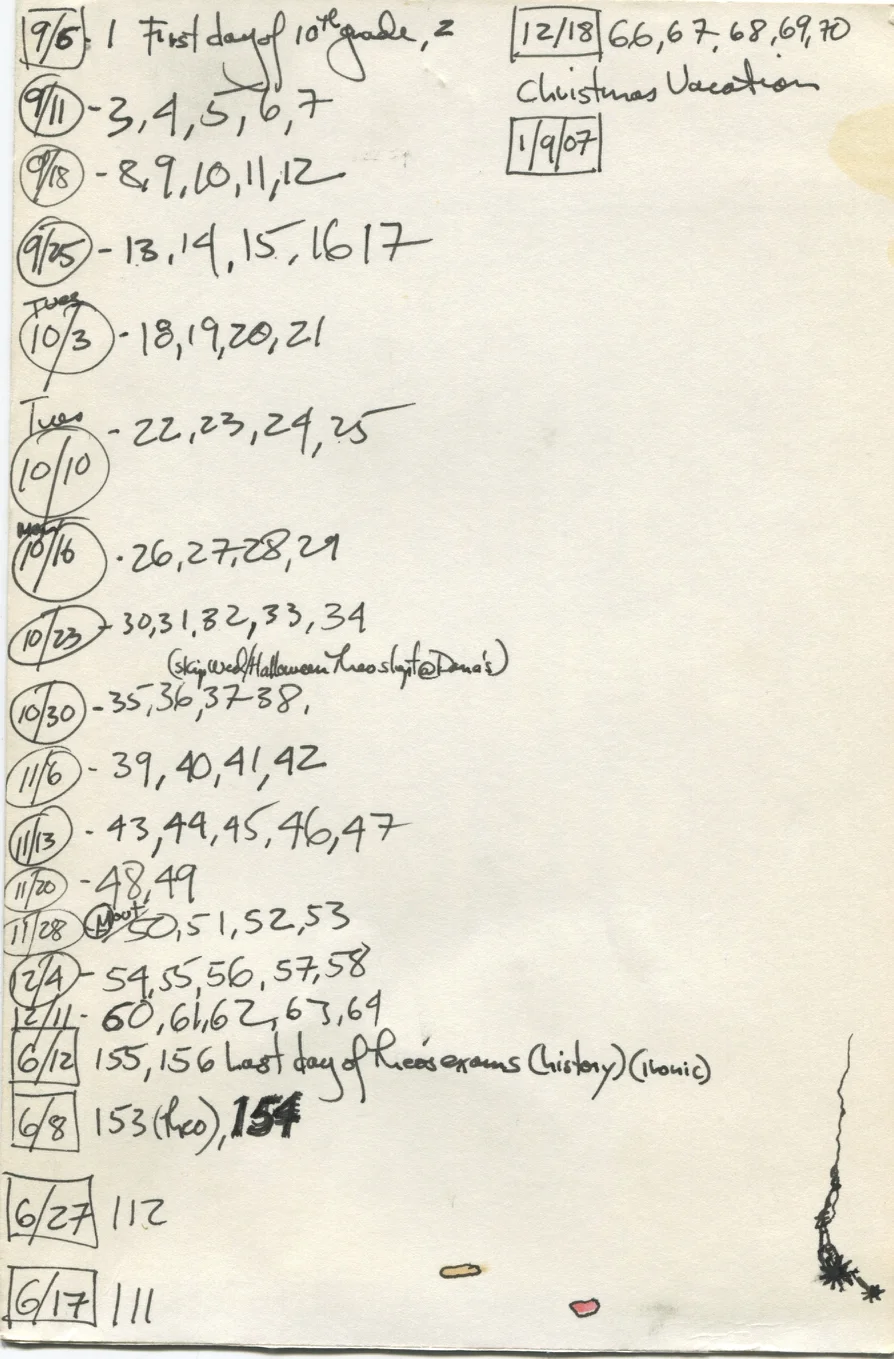 9/5 - 1 First day of 10th grade, 2
9/11 - 3, 4, 5, 6, 7
9/18 - 8, 9, 10, 11, 12
9/25 - 13, 14, 15, 16 17
Tues
10/3 - 18, 19, 20, 21
Tues
10/10 - 22, 23, 24, 25
Mon
10/16 - 26, 27, 28, 29
10/23 - 30, 31, 32, 33, 34
(skip Wed/Halloween Theo slept @ Dana's)
10/30 - 35, 36, 37 38,
11/6 - 39, 40, 41, 42
11/13 - 43, 44, 45, 46, 47
11/20 - 48, 49
11/28 50, 51, 52, 53
12/4 - 54, 55, 56, 57, 58
12/11 - 60, 61, 62, 63, 64
6/12 155, 156 Last day of Theo's exams (history) (Ironic)
6/8 153 (Theo), 154
6/27 112
6/17 111
12/18 66, 67, 68, 69, 70
Christmas Vacation
1/9/07